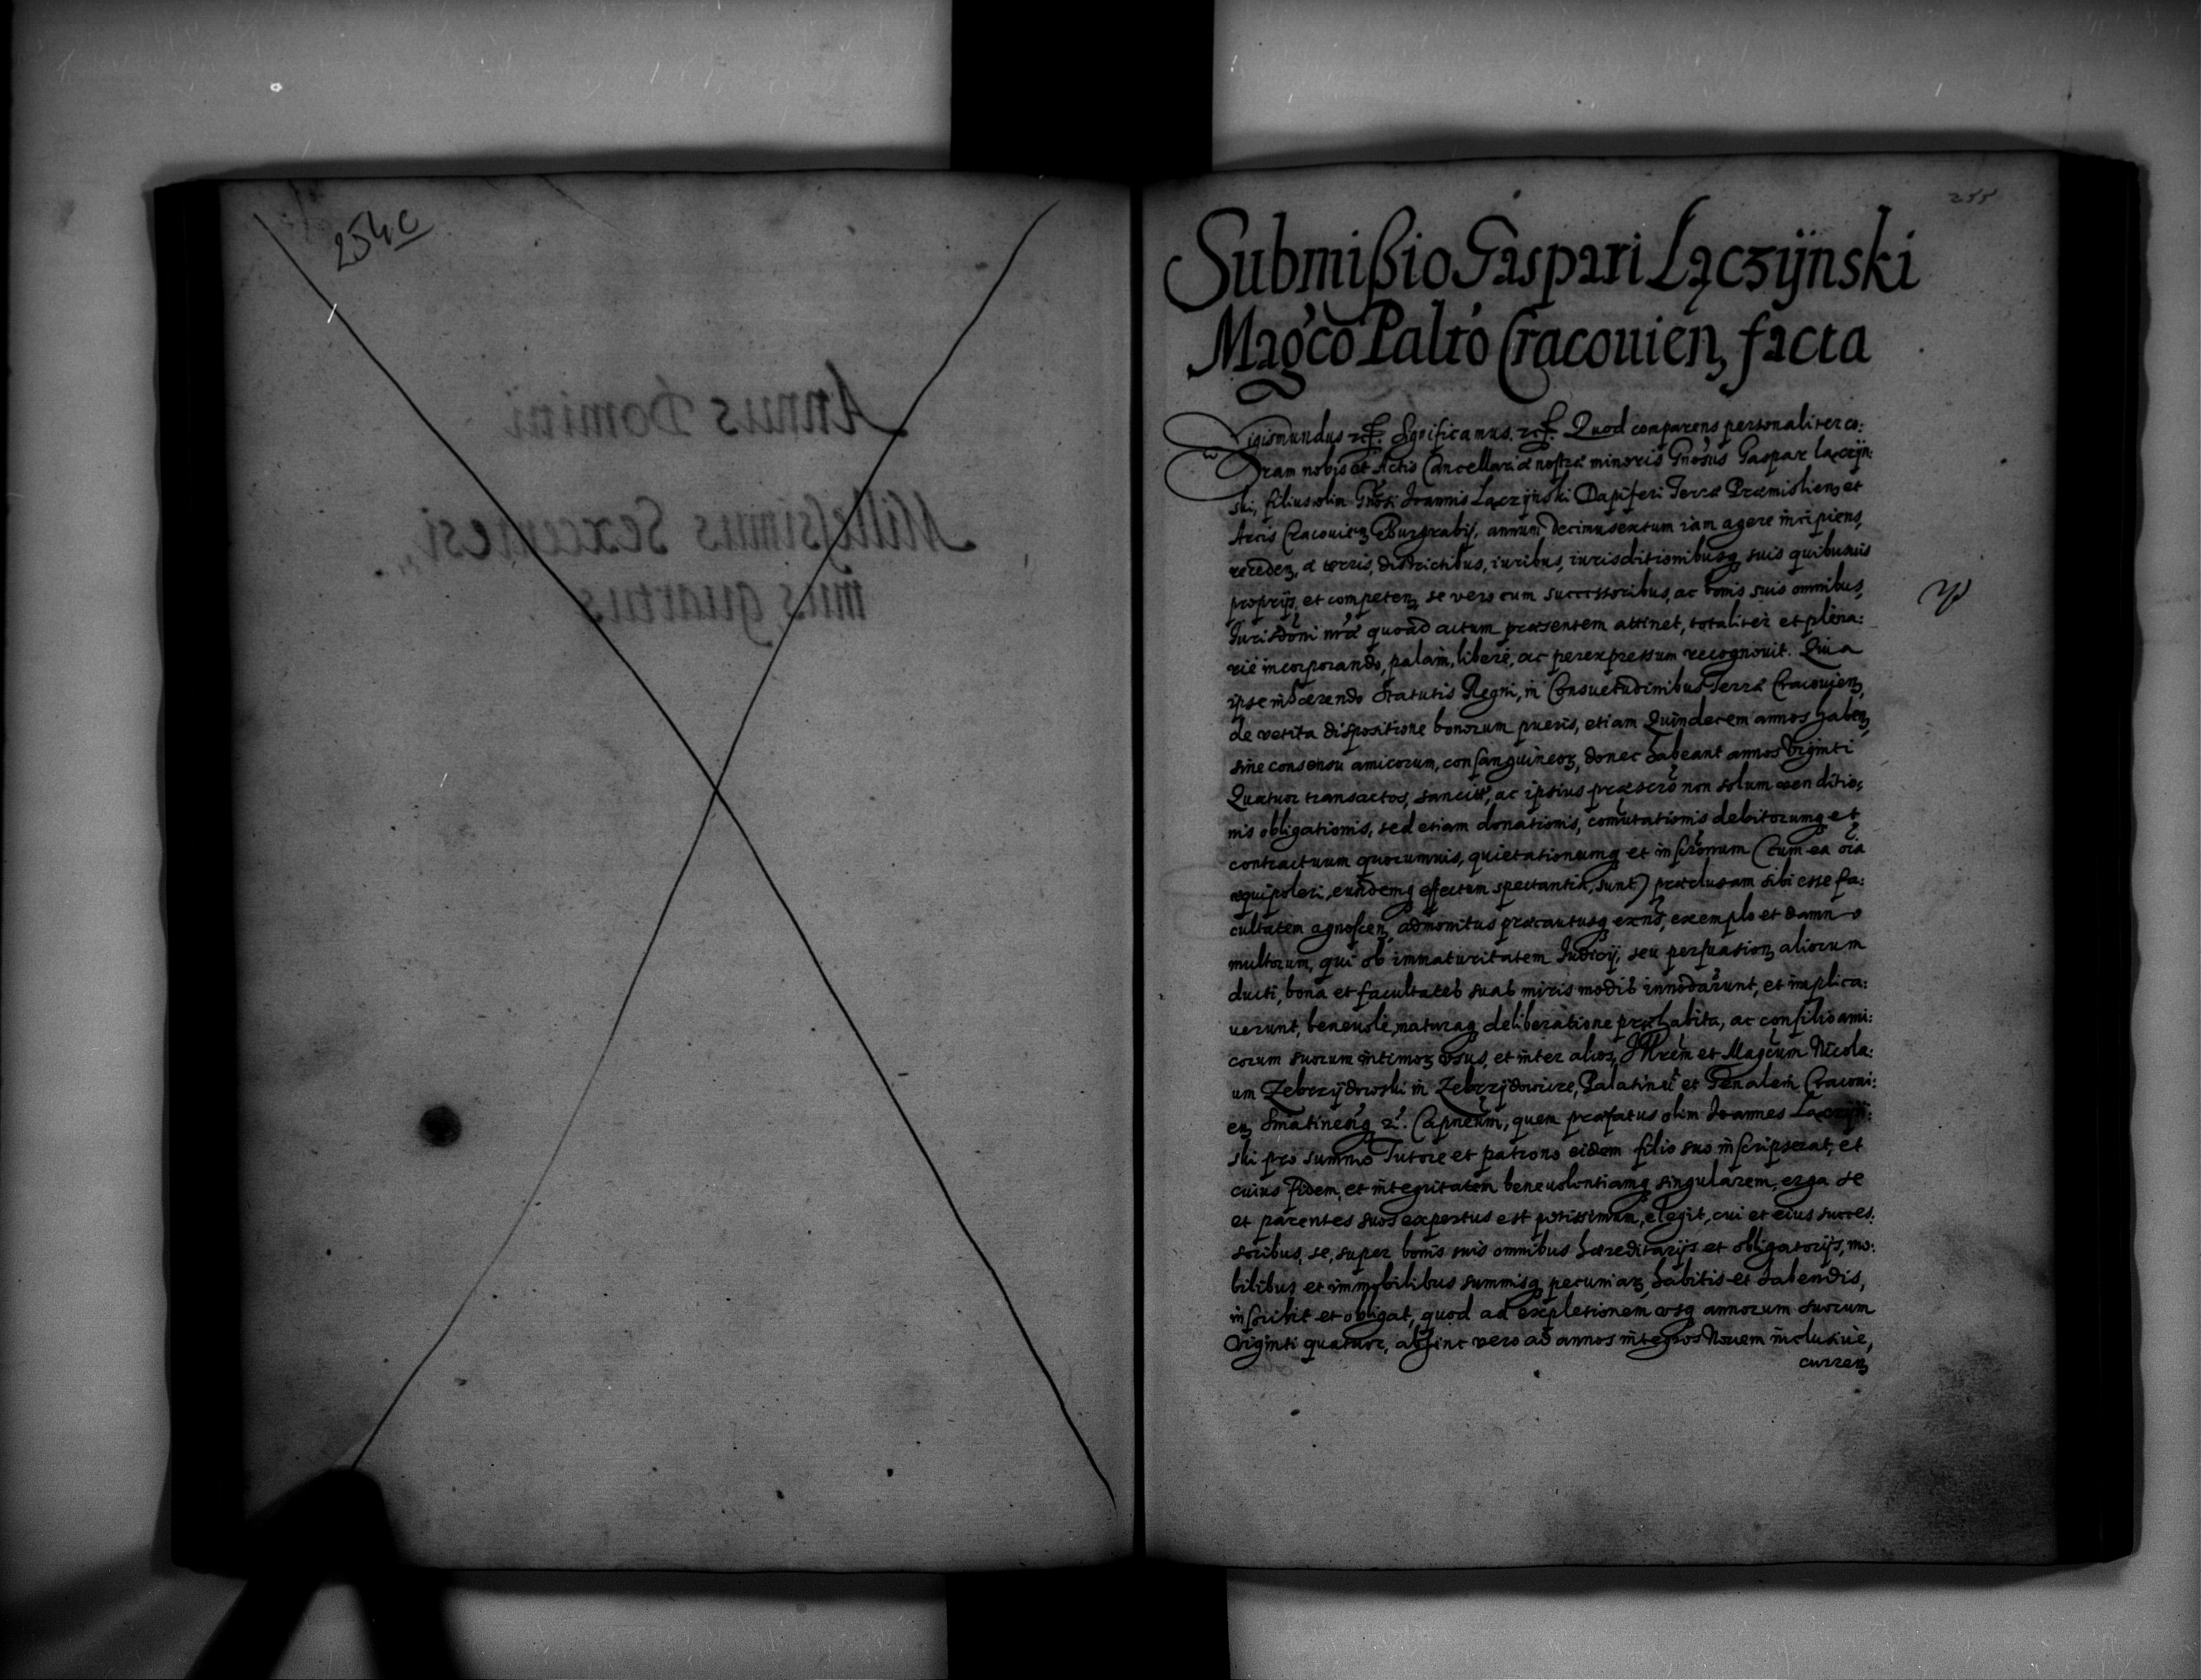 254c
Annus Domini
Millesimus Sexcentesi,,
mus quartus
255
Submißio Gaspari Lączÿnski
Mag'co Palt'o Cracouien, facta
Sigismundus etc. Significamus etc. Quod comparens personaliter co:
ram nobis et Actis Cancellariæ nostræ minoris Gnosus Gaspar Lączÿn:
ski, filius olim Gnosi Joannis Lączÿnski Dapiferi Terræ Præmislien, et
Arcis Cracouien, Burgrabij, annum decimumsextum iam agere incipiens,
receden, a terris, districtibus, iuribus, iurisditionibusq suis quibusuis
proprijs, et competen, se vero cum successoribus, ac bonis suis omnibus,
Jurisdoni nræ quoad actum præsentem attinet, totaliter et plena:
rie incorporando, palam, libere, ac per expressum recognouit. Quia
ipse inhærendo Statutis Regni, in Consuetudinibus Terræ Cracouien,
de vetita dispositione bonorum pueris, etiam Quindecem annos haben,
sine consensu amicorum, consanguineor, donec habeant annos Viginti
Quatuor transactos, sancitis, ac ipsius præscro non solum venditio:
nis obligationis, sed etiam donationis, comutationis debitorumq et
contractuum quorumuis, quietationumq et inscronum (cum ea oia
æquipoleri, eundemq effectum spectantia, sunt) præclusam sibi esse fa:
cultatem agnoscen, admonitus præcautusq exns, exemplo et damno
multorum, qui ob immaturitatem Judicij, seu persuasion, aliorum
ducti, bona et facultates suas miris modis innodarunt, et implica:
uerunt, beneuole, maturaq deliberatione præhabita, ac consilio ami:
corum suorum intimor, usus, et inter alios, Jllrem et Magcum Nicola:
um Zebrzÿdowski in Zebrzÿdowice, Palatinu et Genalem Cracoui:
en, Smatinensq etc. Capneum, quem præfatus olim Joannes Lączÿn:
ski pro summo Tutore et patrono eidem filio suo inscripserat, et
cuius Fidem, et integritatem beneuolentiamq singularem, erga se
et parentes suos expertus est potissimum, elegit, cui et eius succes:
soribus, se, super bonis suis omnibus hæreditarijs et obligatorijs, mo:
bilibus et immobilibus summisq pecuniar, habitis et habendis,
inscribit et obligat, quod ad expletionem vsq annorum suorum
Viginti quatuor, abhinc vero ad annos integros Nouem inclusiue,
curren